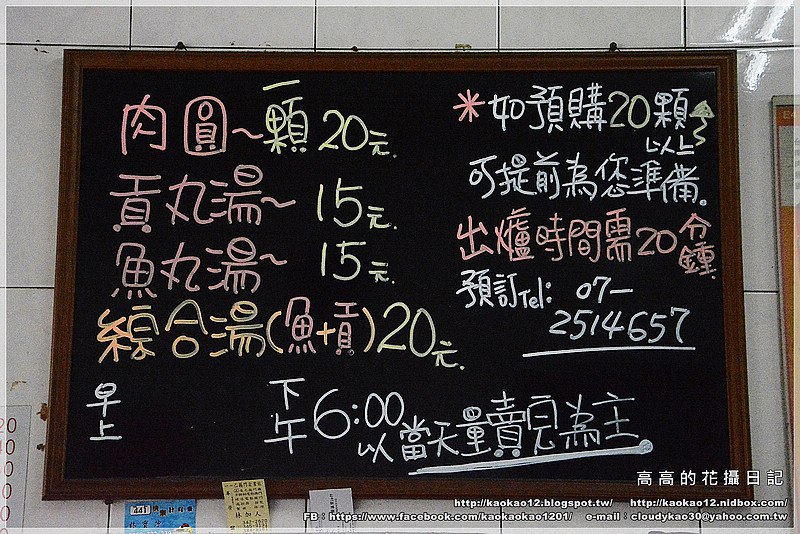 肉圓~一顆20元.
貢丸湯~ 15元.
魚丸湯~ 15元.
綜合湯(魚+貢)20元.
早上 下午6:00 以當天量賣完為主
*如預購20顆以上
可提前為您準備.
出爐時間需20分鐘.
預訂Tel: 07-
2514657
林加人
高高的花攝日記
http://kaokao12.blogspot.tw/ http://kaokao12.nidbox.com/
FB:https://www.facebook.com/kaokaokao1201/ e-mail:cloudykao30@yahoo.com.tw